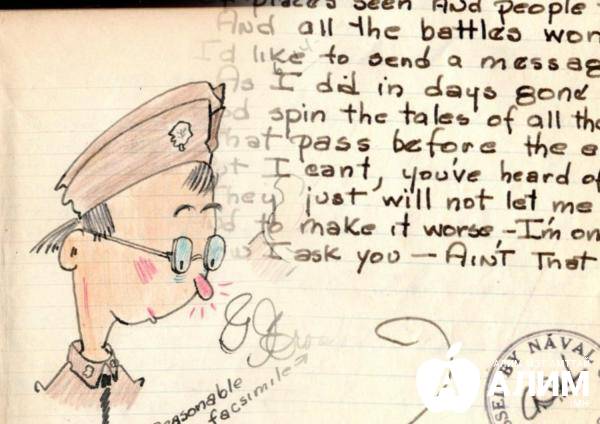 places seen AND people
And all the battles won
I'd like to send a messag
As I did in days gone
spin the tales of all the
that pass before the
I cant, you've heard of
They just will not let me
to make it worse,-I'm on
I ask you — AIN'T That
reasonable
facsimile
SED BY NAVAL
АЛИМ